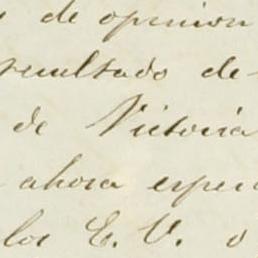 de opinion
resultado de
de Victoria
ahora espe
los E. V. o